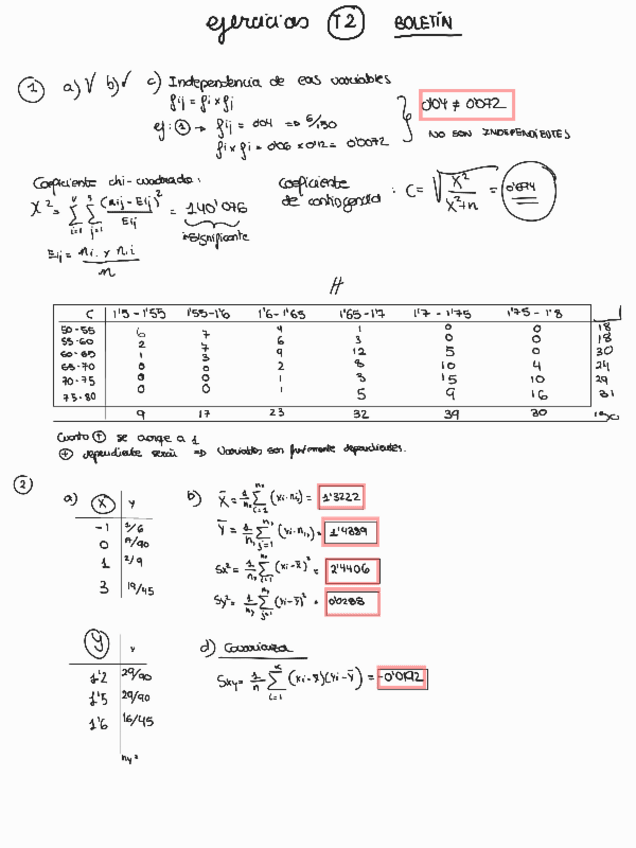 ejercicios T2 BOLETÍN
1 a) √ b) ✓ c) Independencia de las variables
fij = fi × fj
ej: 1 → fij = 0'04 => 6/150
fi × fj = 0'06 × 0'12 = 0'0072
0'04 ≠ 0'072
NO SON INDEPENDIENTES
Coeficiente chi-cuadrado:
X² = Σ Σ (nij - Eij)² / Eij = 140'076
insignificante
Eij = ni. × n.i / n
Coeficiente de contingencia : C = √ X² / X²+n = 0'674
H
C 1'5 - 1'55 1'55 - 1'6 1'6 - 1'65 1'65 - 1'7 1'7 - 1'75 1'75 - 1'8
50-55 6 7 4 1 0 0 18
55-60 2 7 6 3 0 0 18
60-65 1 3 9 12 5 0 30
65-70 0 0 2 8 10 4 24
70-75 0 0 1 3 15 10 29
75-80 0 0 1 5 9 16 31
9 17 23 32 39 30 150
Cuanto + se acerque a 1
+ dependiente serán => Variables son fuertemente dependientes.
2
a) X Y
-1 1/6
0 17/90
1 2/9
3 19/45
b) X̄ = 1/n Σ (xi · ni) = 1'3222
Ȳ = 1/n Σ (yi · n) = 1'4389
Sx² = 1/n Σ (xi - x̄)² = 2'4406
Sy² = 1/n Σ (yi - ȳ)² = 0'0288
Y
1'2 29/90
1'5 29/90
1'6 16/45
d) Covarianza
Sxy = 1/n Σ (xi - x̄)(yi - ȳ) = -0'0192